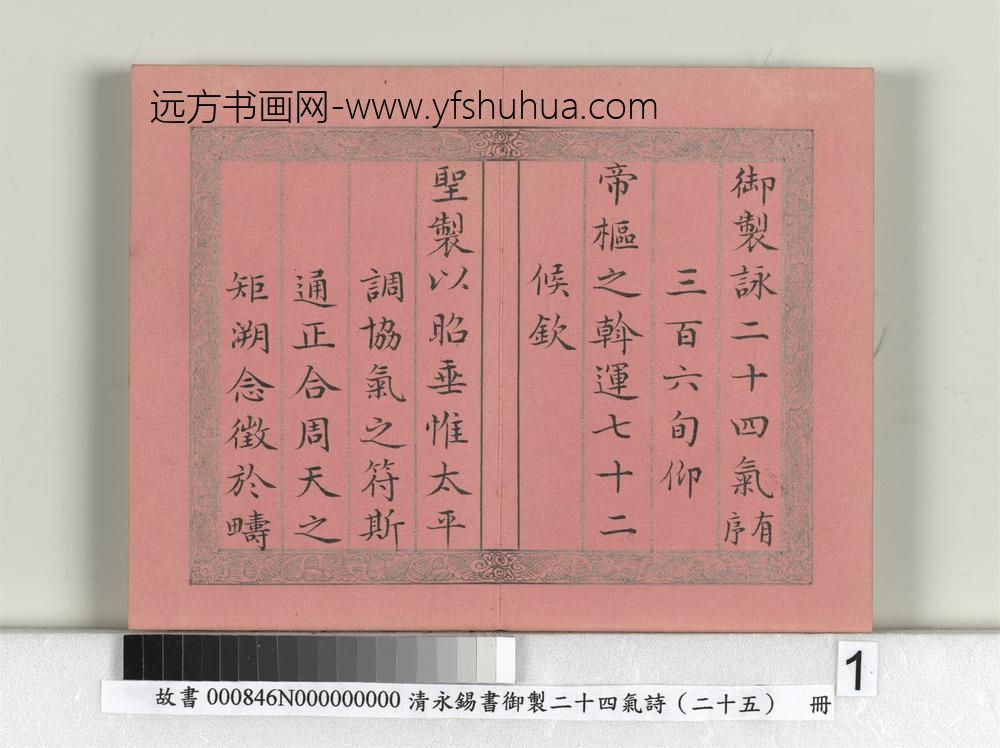 远方书画网-www.yfshuhua.com
御製詠二十四氣有序
三百六旬仰
帝樞之斡運七十二
候欽
聖製以昭垂惟太平
調協氣之符斯
通正合周天之
矩溯念徵於疇
1
故書 000846N000000000 清永錫書御製二十四氣詩（二十五） 冊